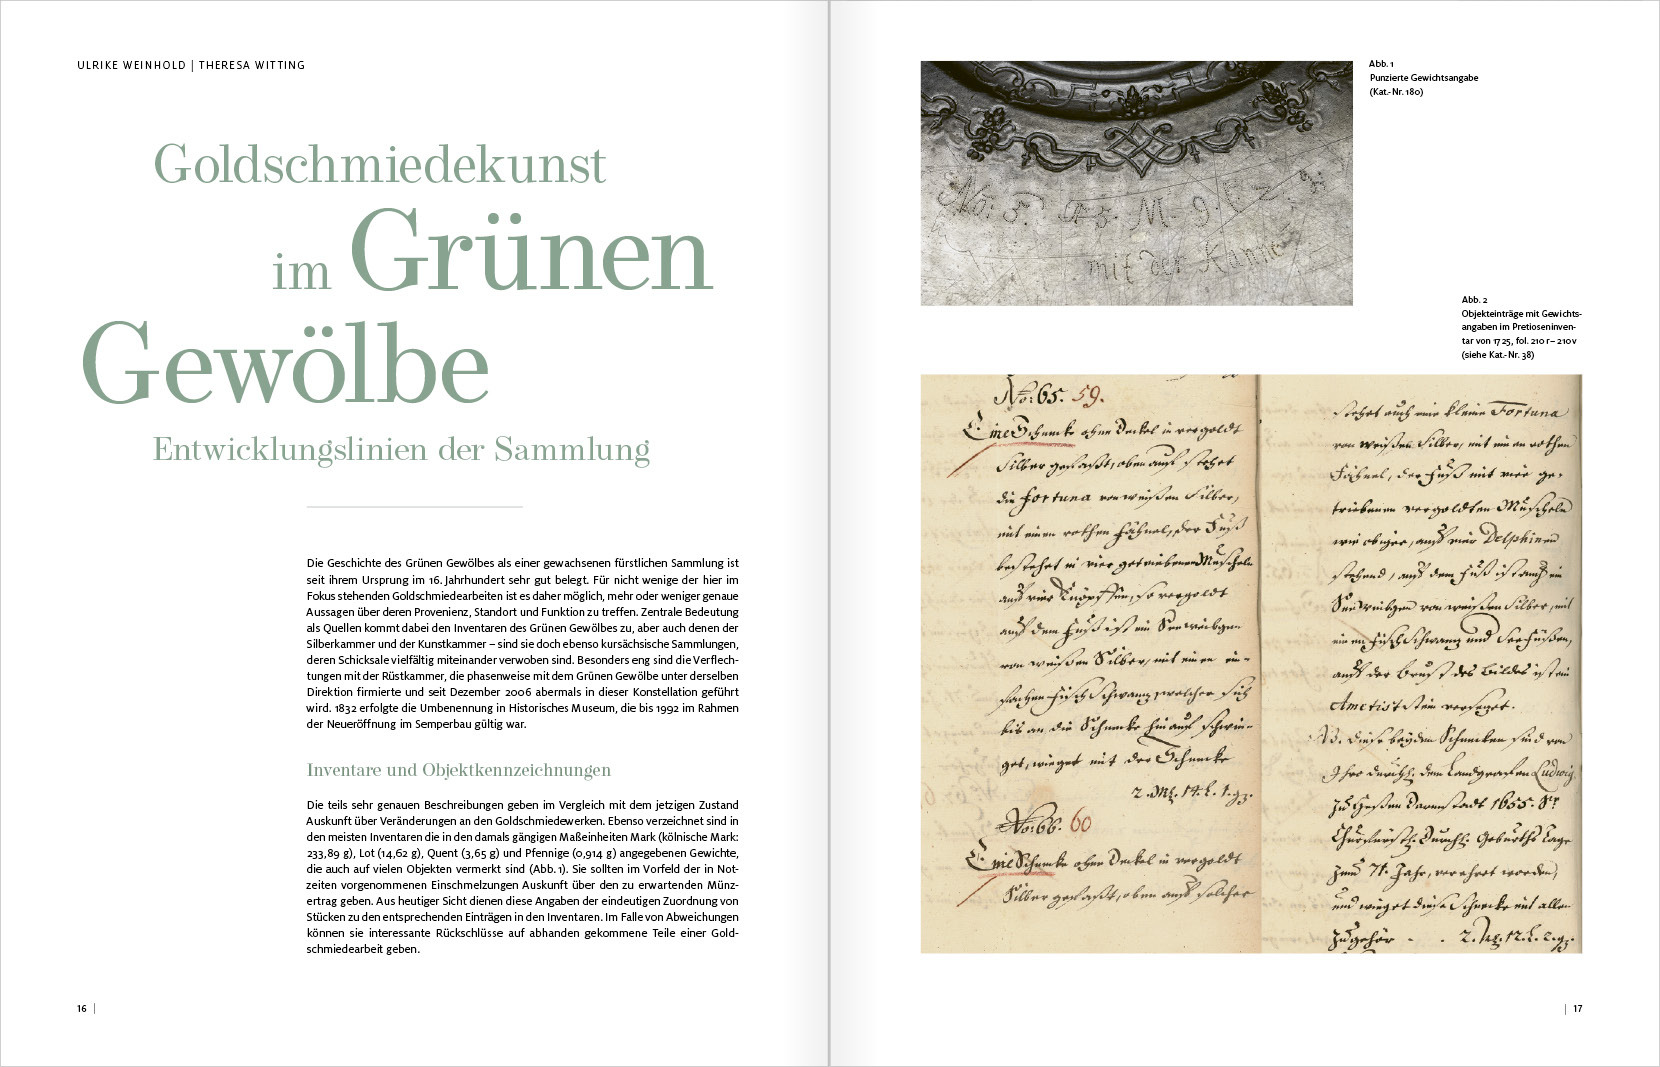 ULRIKE WEINHOLD | THERESA WITTING
Goldschmiedekunst
im Grünen
Gewölbe
Entwicklungslinien der Sammlung
Die Geschichte des Grünen Gewölbes als einer gewachsenen fürstlichen Sammlung ist
seit ihrem Ursprung im 16. Jahrhundert sehr gut belegt. Für nicht wenige der hier im
Fokus stehenden Goldschmiedearbeiten ist es daher möglich, mehr oder weniger genaue
Aussagen über deren Provenienz, Standort und Funktion zu treffen. Zentrale Bedeutung
als Quellen kommt dabei den Inventaren des Grünen Gewölbes zu, aber auch denen der
Silberkammer und der Kunstkammer – sind sie doch ebenso kursächsische Sammlungen,
deren Schicksale vielfältig miteinander verwoben sind. Besonders eng sind die Verflech-
tungen mit der Rüstkammer, die phasenweise mit dem Grünen Gewölbe unter derselben
Direktion firmierte und seit Dezember 2006 abermals in dieser Konstellation geführt
wird. 1832 erfolgte die Umbenennung in Historisches Museum, die bis 1992 im Rahmen
der Neueröffnung im Semperbau gültig war.
Inventare und Objektkennzeichnungen
Die teils sehr genauen Beschreibungen geben im Vergleich mit dem jetzigen Zustand
Auskunft über Veränderungen an den Goldschmiedewerken. Ebenso verzeichnet sind in
den meisten Inventaren die in den damals gängigen Maßeinheiten Mark (kölnische Mark:
233,89 g), Lot (14,62 g), Quent (3,65 g) und Pfennige (0,914 g) angegebenen Gewichte,
die auch auf vielen Objekten vermerkt sind (Abb. 1). Sie sollten im Vorfeld der in Not-
zeiten vorgenommenen Einschmelzungen Auskunft über den zu erwartenden Münz-
ertrag geben. Aus heutiger Sicht dienen diese Angaben der eindeutigen Zuordnung von
Stücken zu den entsprechenden Einträgen in den Inventaren. Im Falle von Abweichungen
können sie interessante Rückschlüsse auf abhanden gekommene Teile einer Gold-
schmiedearbeit geben.
16 |
Abb. 1
Punzierte Gewichtsangabe
(Kat.-Nr. 180)
No: 5. M. 9.
mit der Kanne
Abb. 2
Objekteinträge mit Gewichts-
angaben im Pretioseninven-
tar von 1725, fol. 210 r – 210 v
(siehe Kat.-Nr. 38)
No: 65. 59.
Eine Schnecke ohne Deckel in vergoldt
Silber gefaßt, oben auf stehet
die Fortuna von weißen Silber,
mit einen rothen Fähnel, der Fuß
bestehet in vier getriebenen Muscheln
auf dem Fuß ist ein Seeweibgen
von weißen Silber, mit einen ein-
fachen Fisch Schwanz, welcher sich
bis an die Schnecke hinauf schwin-
get, wieget mit der Schnecke
No: 66. 60
Eine Schnecke ohne Deckel in vergoldt
Silber gefaßt, oben auf solcher
stehet auch eine kleine Fortuna
von weißen Silber, mit einen rothen
Fähnel, der Fuß mit vier ge-
triebenen vergoldten Muscheln
wie obiger, auf vier Delphinen
stehend, auf dem Fuß ist auch ein
Seeweibgen von weißen Silber, mit
einen Fisch Schwanz und
auf der Brust des Bildes ist ein
Ametist Stein versezet.
diese beyden Schnecken sind von
Ihro Durchl. dem Landgrafen Ludwig
zu Heßen Darmstadt 1655. Sr.
Churfürstl. Durchl. Geburths Tage
zum 71. Jahr, verehret worden,
und wieget diese Schnecke mit allen
zugehör
| 17